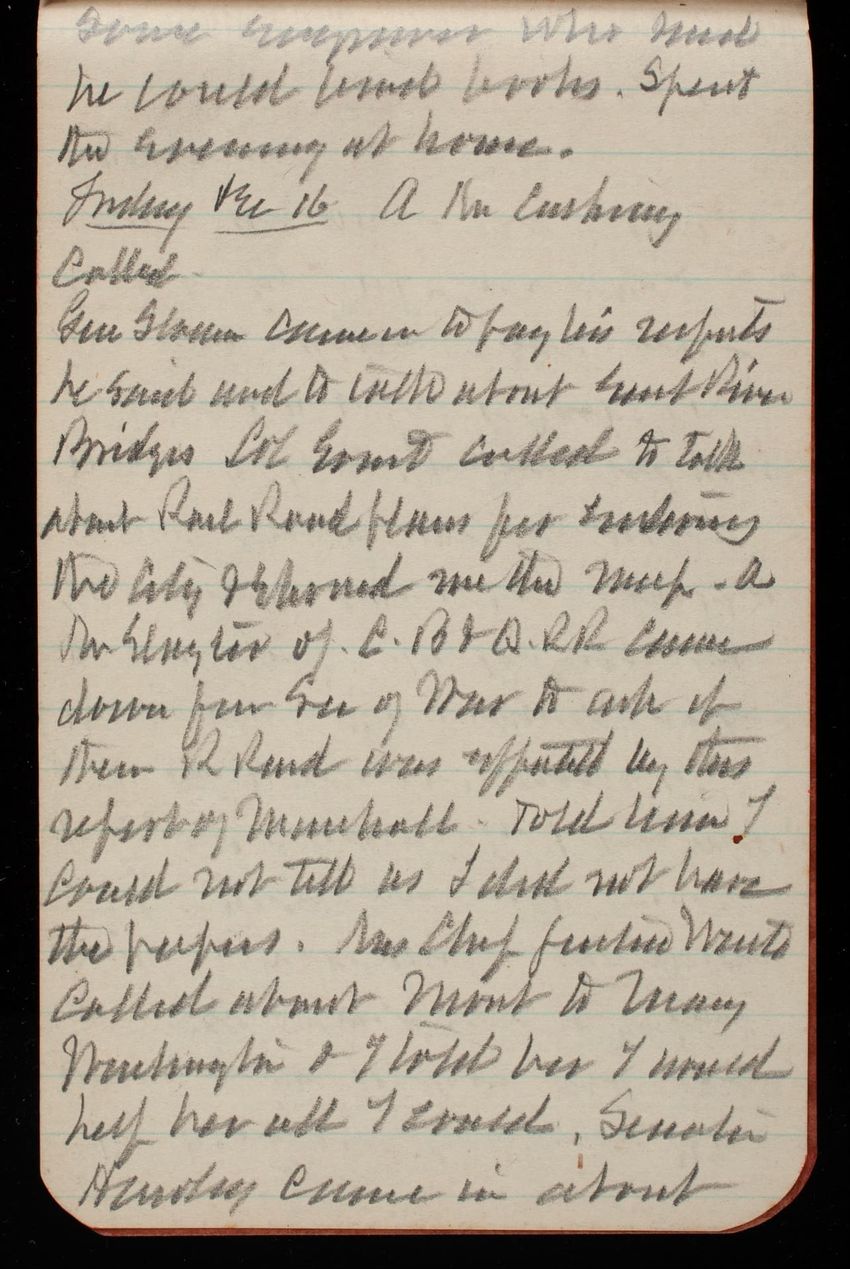 Some engraver who said
he could bind books. Spent
the evening at home.
Friday Dec 16 A Mr Cushing
Called
Gen Slocum came in to pay his respects
he said and to talk about East River
Bridges Col Grant called to talk
about Rail Road plans for entering
the City & showed me the map. A
Mr of C. B & Q. RR came
down from Sec of War to ask if
their R Road was affected by this
report of Marshall. Told him I
could not tell as I did not have
the papers. Mrs Chief Justice Waite
Called about Mont to Mary
Washington & I told her I would
help her all I could, Senator
came in about